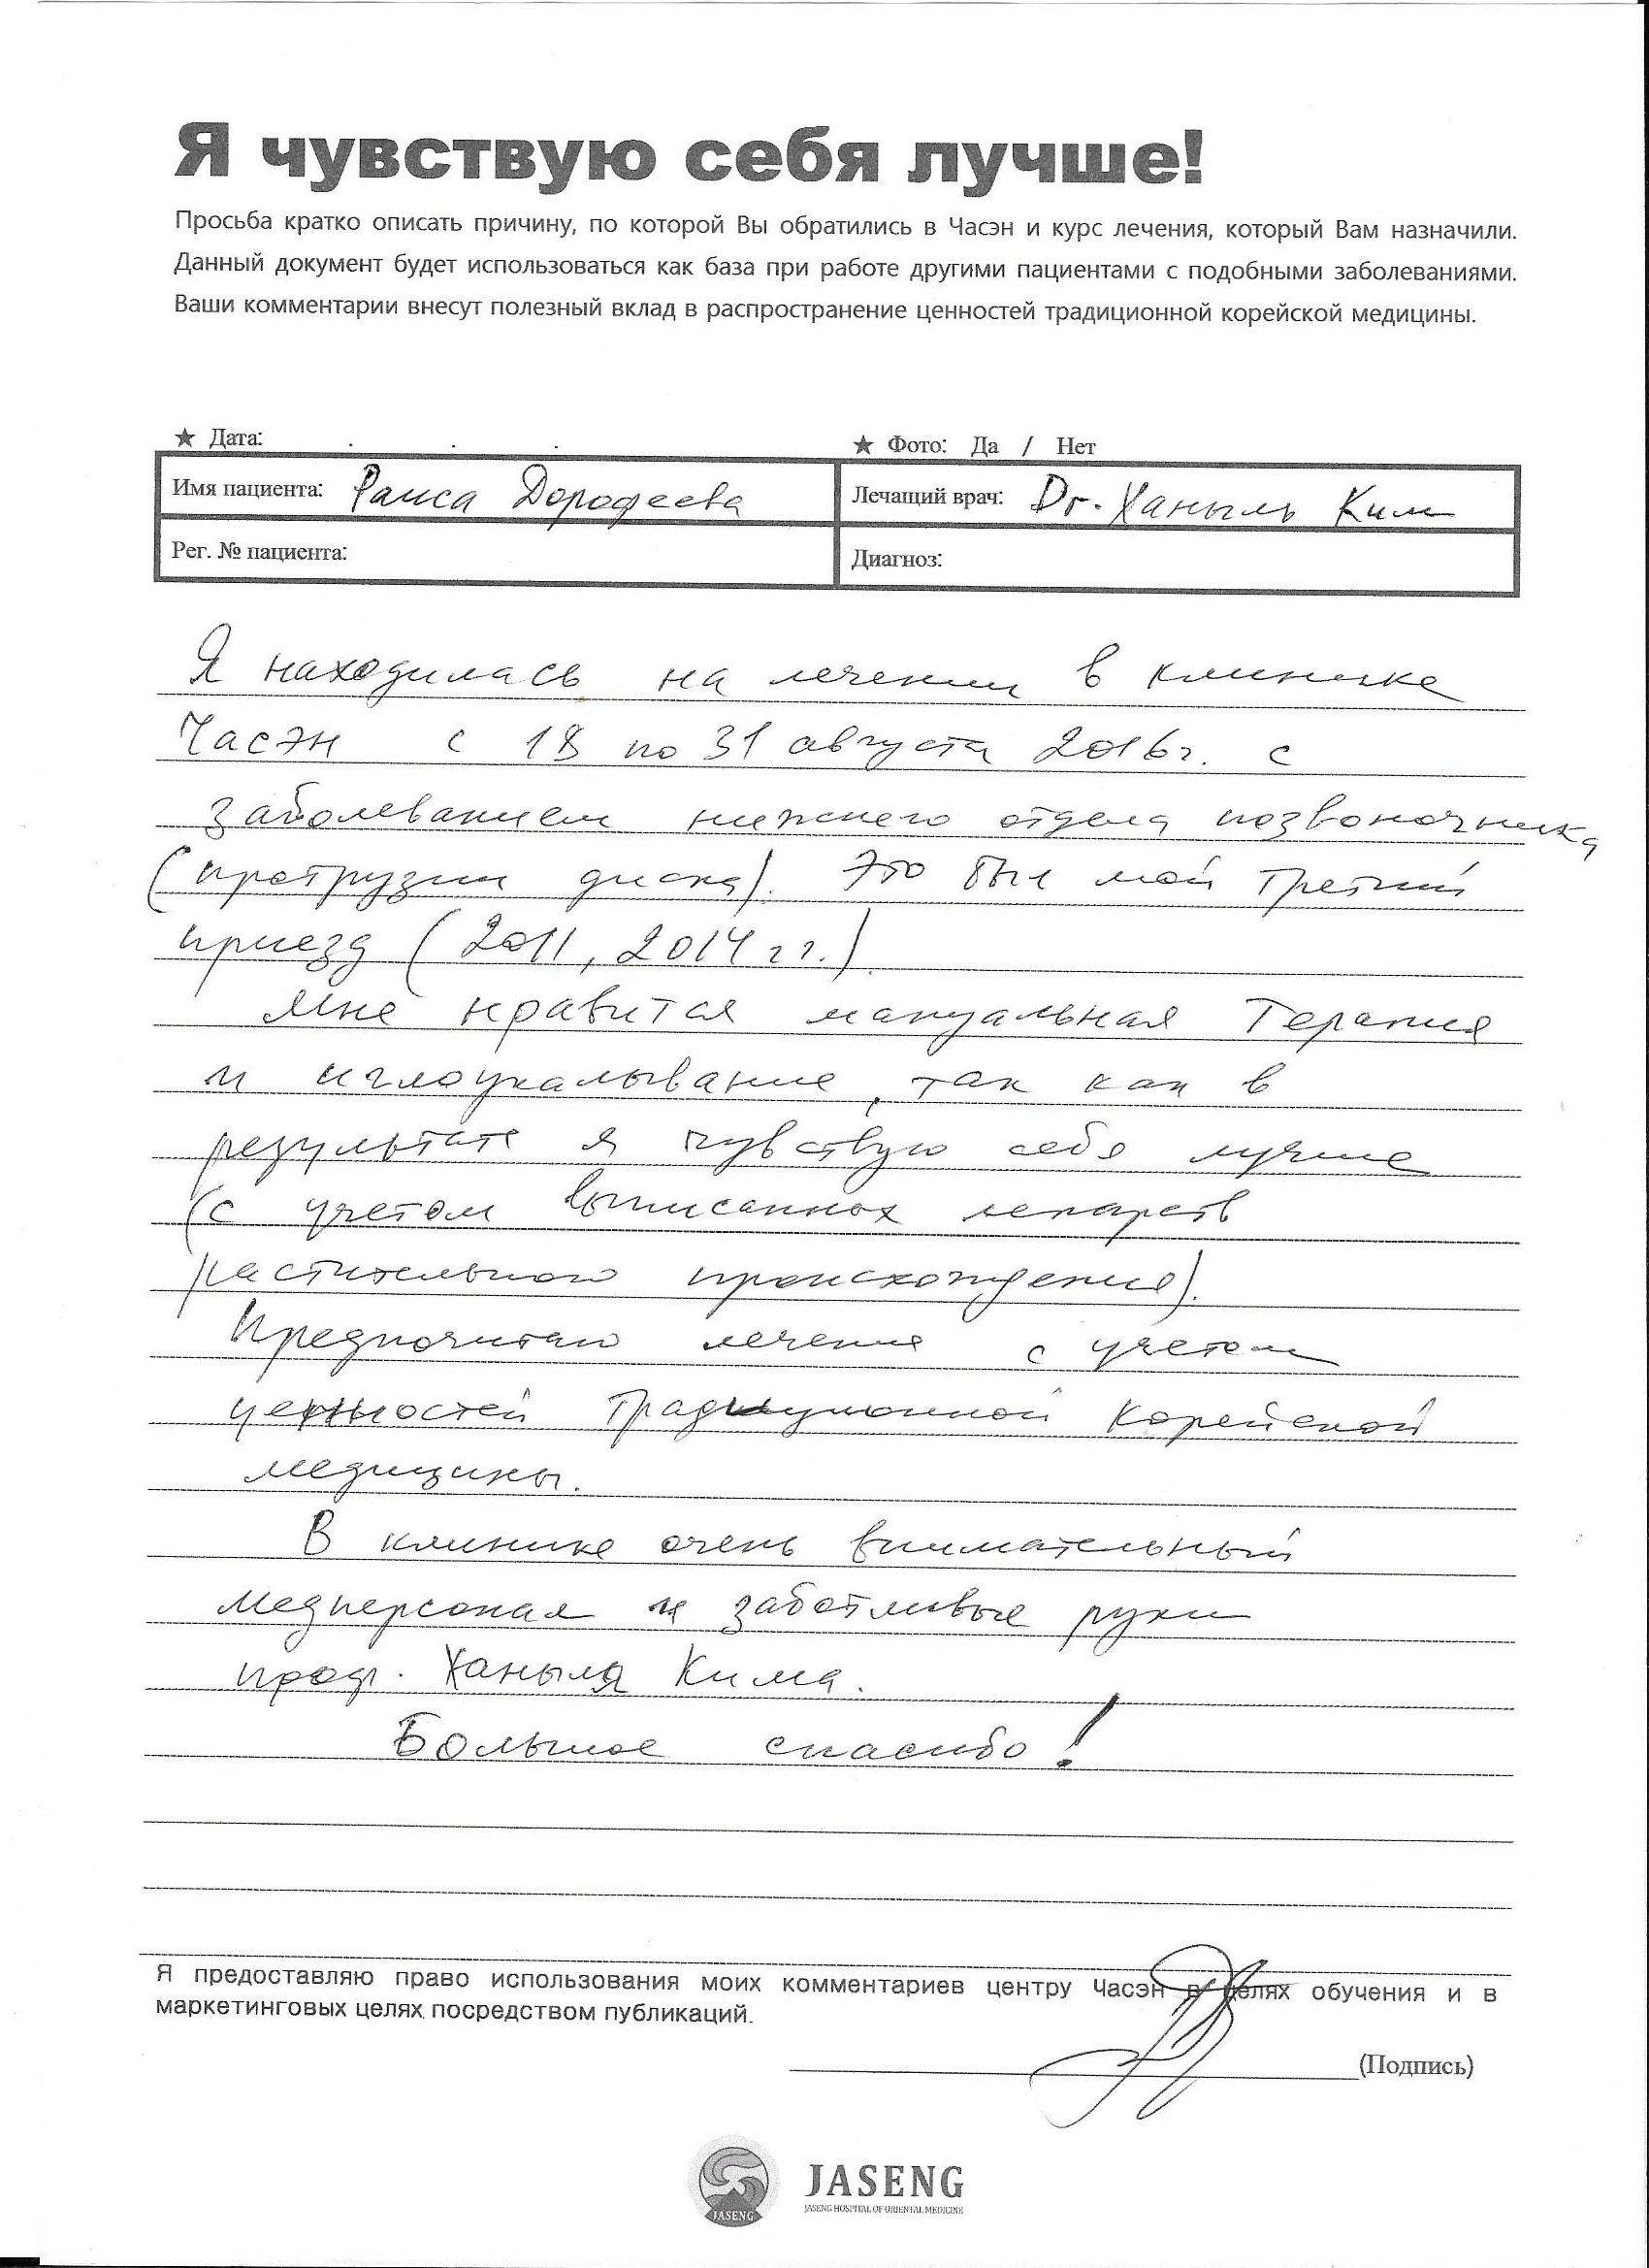 Я чувствую себя лучше!
Просьба кратко описать причину, по которой Вы обратились в Часэн и курс лечения, который Вам назначили.
Данный документ будет использоваться как база при работе другими пациентами с подобными заболеваниями.
Ваши комментарии внесут полезный вклад в распространение ценностей традиционной корейской медицины.
★ Дата: . . . ★ Фото: Да / Нет
Имя пациента: Раиса Дорофеева Лечащий врач: Dr. Ханыль Ким
Рег. № пациента: Диагноз:
Я находилась на лечении в клинике
Часэн с 18 по 31 августа 2016г. с
заболеванием нижнего отдела позвоночника
(протрузии диска). Это был мой третий
приезд (2011, 2014 гг.).
Мне нравится мануальная терапия
и иглоукалывание, так как в
результате я чувствую себя лучше
(с учетом выписанных лекарств
растительного происхождения).
Предпочитаю лечение с учетом
ценностей традиционной Корейской
медицины.
В клинике очень внимательный
медперсонал и заботливые руки
проф. Ханыля Кима.
Большое спасибо!
Я предоставляю право использования моих комментариев центру Часэн в целях обучения и в
маркетинговых целях посредством публикаций.
(Подпись)
JASENG
JASENG
JASENG HOSPITAL OF ORIENTAL MEDICINE